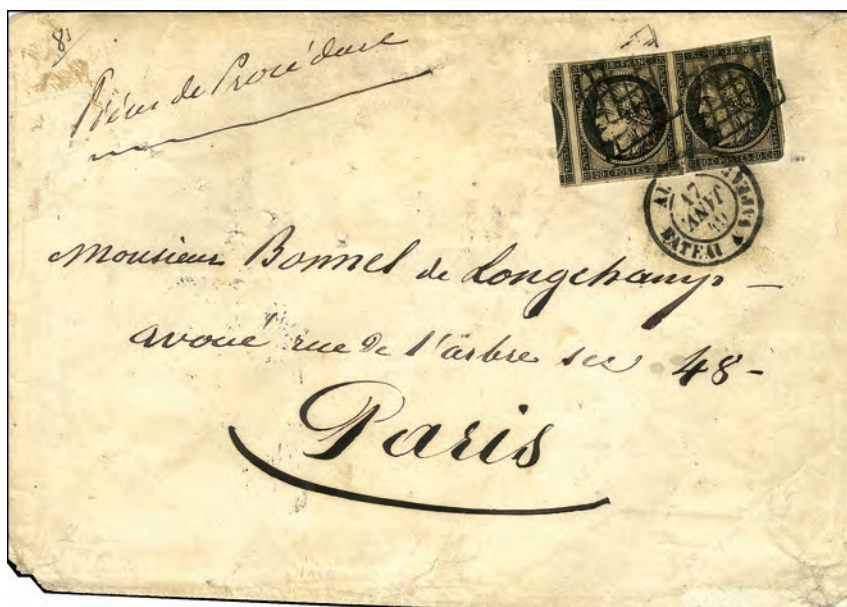 8s
Pièces de Procédure
REPUB. FRANC
20·C·POSTES·20·C
20·C·POSTES·20·C
17
JANV.
BATEAU A VAPEUR
Monsieur Bonnel de Longchamp -
avoué rue de l'arbre sec 48 -
Paris